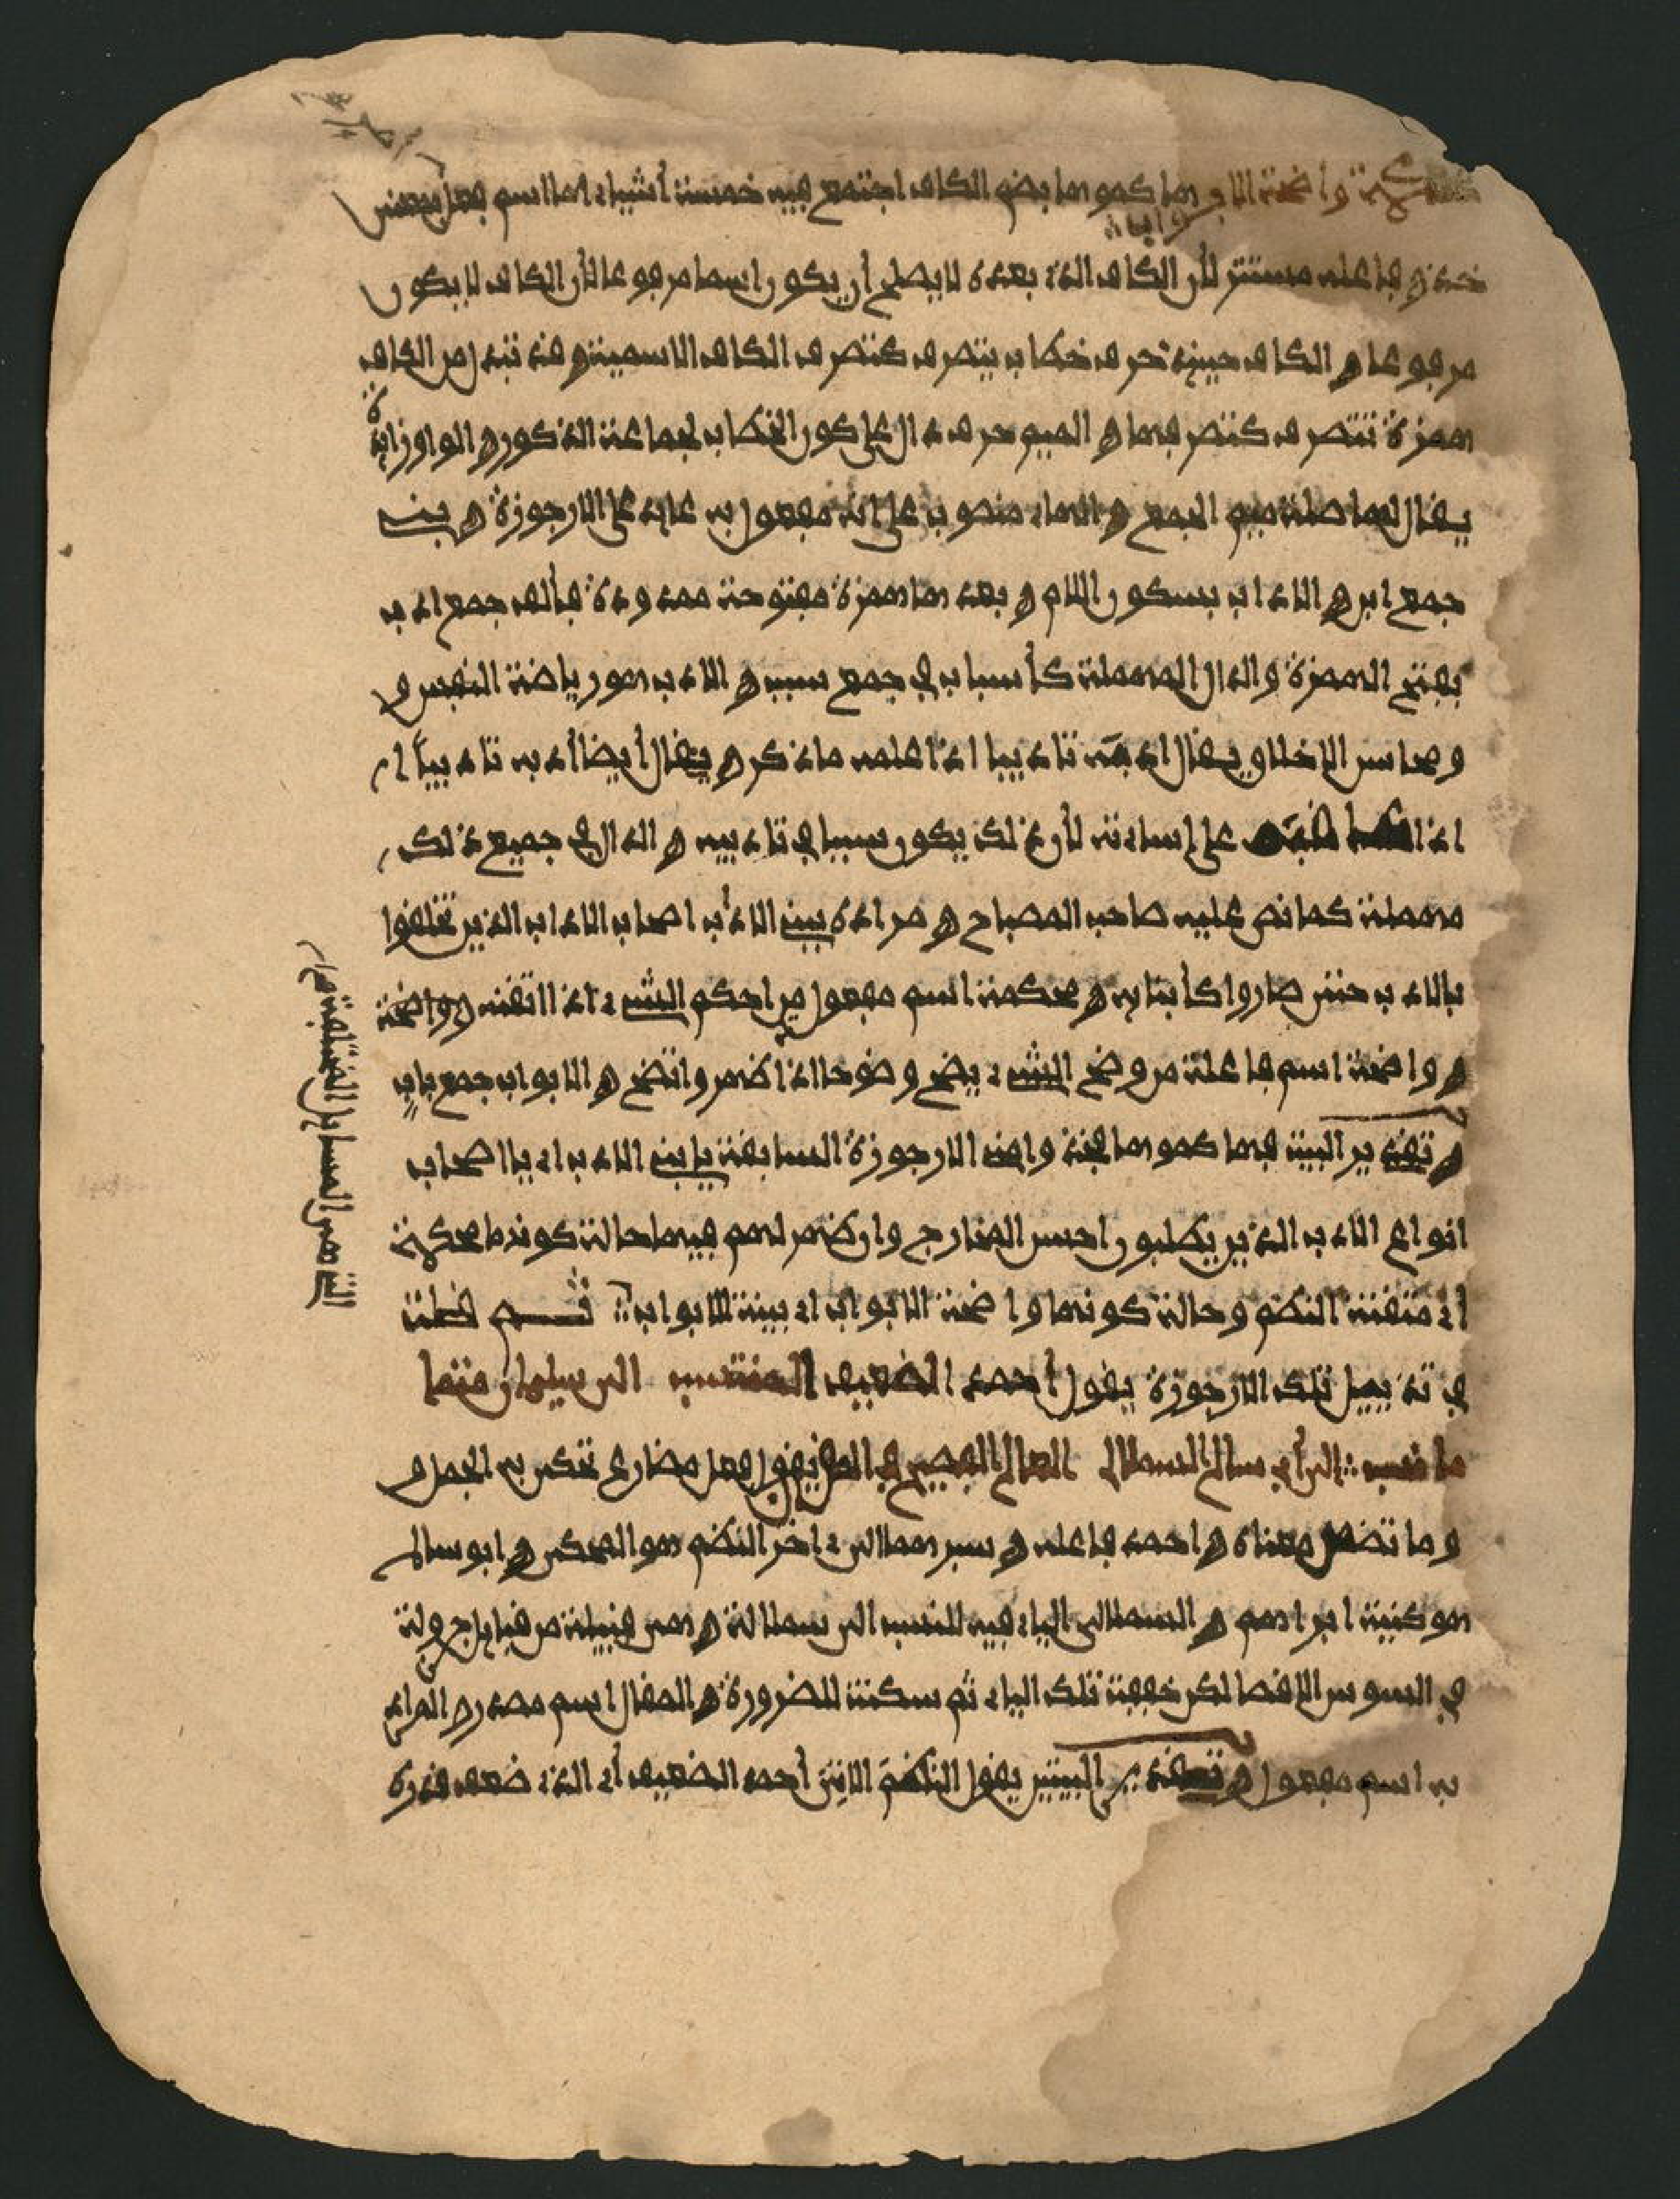 محكمة واضحة الابواب هاكموها بضم الكاف اجتمع فيه خمسة أشياء اها اسم فعل بمعنى
خذ و فاعله مستتر لأن الكاف الذي بعده لا يصلح أن يكون اسما مرفوعا لأن الكاف لا يكون
مرفوعا و الكاف حينئذ حرف خطاب يتصرف كتصرف الكاف الاسمية و قد تبدل من الكاف
همزة تتصرف كتصرفها و الميم حرف دال على كون الخطاب لجماعة الذكور و الواو زايدة
يقال لها صلة ميم الجمع و الهاء منصوب على انه مفعول به عايد على الارجوزة و بنى
جمع ابن و الاداب بسكون اللام و بعدها همزة مفتوحة ممدودة فألف جمع ادب
بفتح الهمزة والدال المهملة كأسباب في جمع سبب و الادب هو رياضة النفس و
و محاسن الاخلاق ويقال ادبته تاديبا اذا علمه ماذكر و يقال أيضا أدبه تاديبا ا
اذا على إساءته لأن ذلك يكون سببا في تاديبه و الدال في جميع ذلك
مهملة كما نص عليه صاحب المصباح و مراده ببنى الأدب اصحاب الاداب الذين تخلقوا
بالادب حتى صاروا كأبنايه و محكمة اسم مفعول من احكم الشيء اذا اتقنه و واضحة
و واضحة اسم فاعلة من وضح الشيء يضح وضوحا اذا ظهر واتضح و الابواب جمع باب
و تقدير البيت فهاكموها فخذوا هذه الارجوزة السابقة يا بنى الادب اي يا اصحاب
انواع الادب الذين يطلبون احسن المخارج وان ظهر لهم فيها حالة كونها محكمة
أي متقنة النظم وحالة كونها واضحة الابواب اي بينة الابواب ثـم قلت
في تذييل تلك الارجوزة يقول أحمد الضعيف المنتسب الى سليمان منتما
ما نسب الى أبي سالم السملالي العالم الفصيح في المقال يقول فعل مضارع تحكى به الجمل و
و ما تضمن معناه و احمد فاعله و سبر هما الى اخر النظم هو المحكى و ابو سالم
هو كنية ابراهيم و السملالى الياء فيه للنسب الى سملالة و هى قبيلة من قبايل جزولة
في السوس الاقصا لكن خففت تلك الياء ثم سكنت للضرورة و المقال اسم مصدر و المراد
به اسم مفعول و تقدير البيتين يقول الناظم الاتى أحمد الضعيف أي الذي ضعف قدره